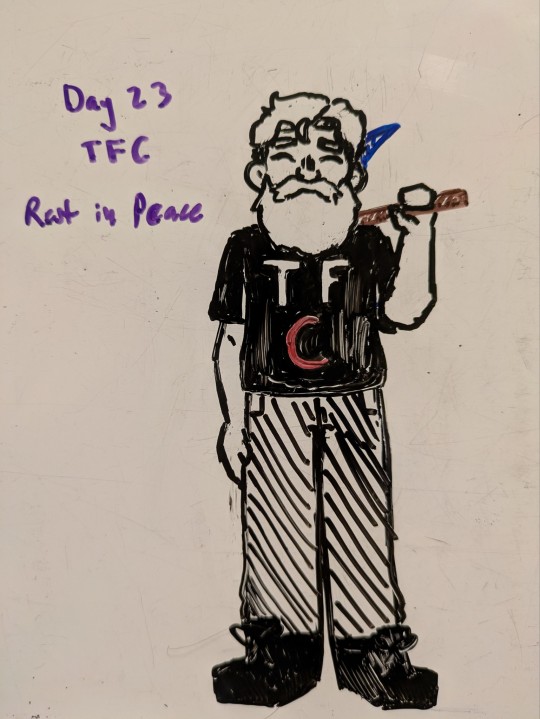 Day 23
TFC
Rest in Peace
T F
C